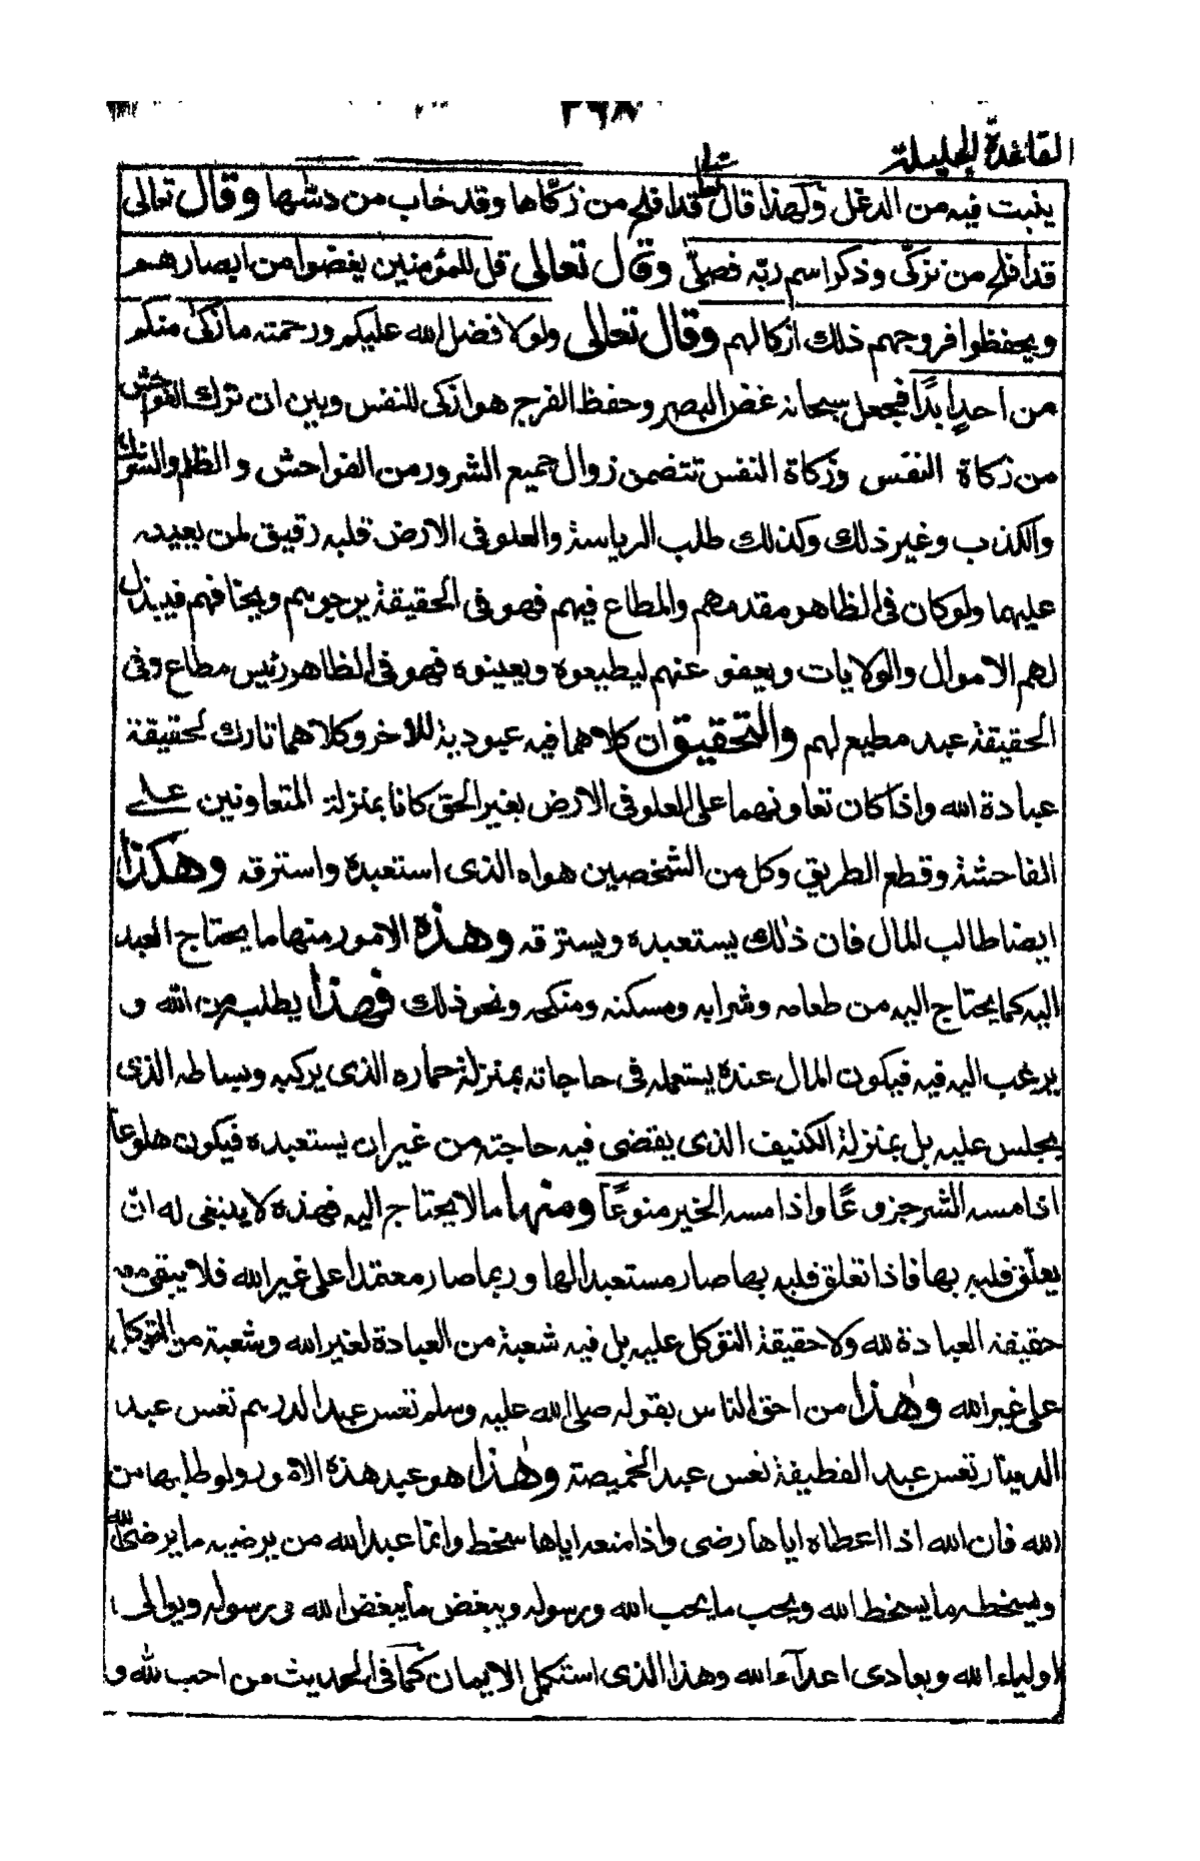 القاعدة الجليلة
ينبت فيه من الدغل ولهذا قال تعالى قد افلح من زكاها وقد خاب من دسّها وقال تعالى
قد افلح من تزكّى وذكر اسم ربّه فصلّى وقال تعالى قل للمؤمنين يغضّوا من ابصارهم
ويحفظوا فروجهم ذلك ازكا لهم وقال تعالى ولولا فضل الله عليكم ورحمته ما زكىٰ منكم
من احدٍ ابدًا فجعل سبحانه غض البصر وحفظ الفرج هو ازكى للنفس وبين ان ترك الفواحش
من زكاة النفس وزكاة النفس تتضمن زوال جميع الشرور من الفواحش والظلم والشرك
والكذب وغير ذلك وكذلك طلب الرياسة والعلو فى الارض قلبه رقيق لمن يعينه
عليهما ولو كان فى الظاهر مقدمهم والمطاع فيهم فهو فى الحقيقة يرجوهم ويخافهم فيبذل
لهم الاموال والولايات ويعفو عنهم ليطيعوه ويعينوه فهو فى الظاهر رئيس مطاع وفى
الحقيقة عبد مطيع لهم والتحقيق ان كلاهما فيه عبودية للاخر وكلاهما تارك لحقيقة
عبادة الله واذا كان تعاونهما على العلو فى الارض بغير الحق كانا بمنزلة المتعاونين على
الفاحشة وقطع الطريق وكل من الشخصين هواه الذى استعبده واسترقه وهكذا
ايضا طالب المال فان ذلك يستعبده ويسترقه وهذه الامور منها ما يحتاج العبد
اليه كما يحتاج اليه من طعامه وشرابه ومسكنه ومنكحه ونحو ذلك فهذا يطلب من الله و
يرغب اليه فيه فيكون المال عنده يستعمله فى حاجاته بمنزلة حماره الذى يركبه وبساطه الذى
يجلس عليه بل بمنزلة الكنيف الذى يقضى فيه حاجته من غير ان يستعبده فيكون هلوعاً
اذا مسه الشر جزوعًا واذا مسه الخير منوعًا ومنها ما لا يحتاج اليه فهذه لا ينبغى له انّ
يعلّق قلبه بها فاذا تعلق قلبه بها صار مستعبدا لها وربما صار معتمدا على غير الله فلا يبقى معه
حقيقة العبادة لله ولا حقيقة التوكل عليه بل فيه شعبة من العبادة لغير الله وشعبة من التوكل
على غير الله وهذا من احق الناس بقوله صلى الله عليه وسلم تعس عبد الدرهم تعس عبد
الدينار تعس عبد القطيفة تعس عبد الخميصة وهذا هو عبد هذه الامور ولو طلبها من
الله فان الله اذا اعطاه اياها رضى واذا منعه اياها سخط وانما عبد الله من يرضيه ما يرضى الله
ويسخطه ما يسخط الله ويحب ما يحب الله ورسوله ويبغض ما يبغض الله ورسوله ويوالى
اولياء الله ويعادى اعدآء الله وهذا الذى استكمل الايمان كما فى الحديث من احب لله و